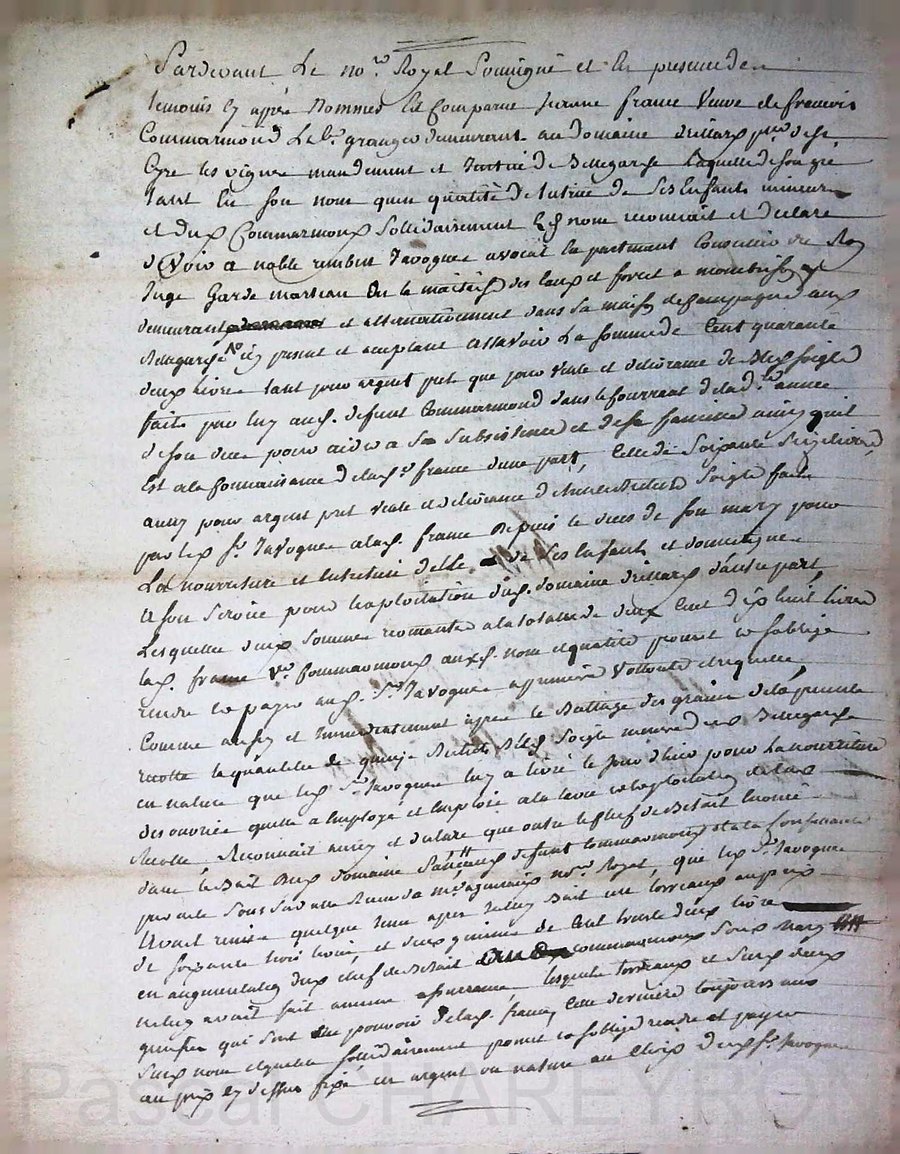 Pardevant Le no.re Royal Soussigné et En presence des
temoins Cy après Nommés Est Comparue jeanne france Veuve de francois
Commarmond Le b.t granger demeurant au domaine
Cyre les vignes mandement et de Bellegarde Laquelle de son gré
tant En son nom qu'en qualité de tutrice de Ses Enfants mineurs
et dud. Commarmond Sollidairement Esd. nom reconnait et declare
devoir a noble rambert javogues avocat En parlement Conseiller du Roy
juge Garde marteau En la maitrise des Eaux et forets a montbrison y
demeurant et alternativement dans sa maison de Campagne aud.
Bellegarde Icy present et acceptant assavoir La somme de Cent quarante
deux livres tant pour argent pret que pour vente et delivrance de Bled Soigle
faite par luy aud. defunt Commarmond dans le Courrant de la d.te année
de son vivant pour aider a Sa Subsistence et de sa famille ainsy qu'il
Est a la Connaissance de lad. france d'une part, Celle de Soixante Seize livres
aussy pour argent pret vente et delivrance de Soigle faite
par led. S.r javogues a lad. france Depuis le deces de Son mary pour
La nourriture et Entretien d'elle de Ses Enfants et domestiques
a Son Service pour l'exploitation dud. domaine d'autre part,
Lesquelles deux Sommes a la totale de deux Cent dix huit livres
lad. france V.e Commarmond auxd. nom et qualité promet et s'oblige
rendre et payer aud. S.r javogues a premiere Vollonté et requette,
Comme aussy et Immediatement après le Battage des grains de la presente
recolte la quantité de quinze Bichets Bled Soigle mesure dud. Bellegarde
en nature que led. S.r javogues luy a livré le jour d'hier pour La nourriture
des ouvriers qu'elle a Employé et Employe a la levée et exploitation de lad.
Recolte, Reconnait aussy et declare que outre le Chef de Betail Enoncé
dans le Bail dud. domaine passé aud. defunt Commarmond et a la
par acte Sous Sa datte Recu de m.e no.re Royal, que led. S.r javogues
Avait remis quelque tems après led. Bail un torreaux au prix
de Soixante trois livres, et deux genisses de Cent trente deux livres
en augmentation dud. chef de Betail Commarmond Son mary
n'en avait fait aucune assurrance, lesquels torreaux et deux
genisses qui Sont au pouvoir de lad. france, Cette derniere toujours aux
Susd. nom et qualité Sollidairement promet et s'oblige rendre et payer
au prix Cy dessus fixé, en argent ou nature au Choix dud. S.r javogues
Pascal CHAREYRON